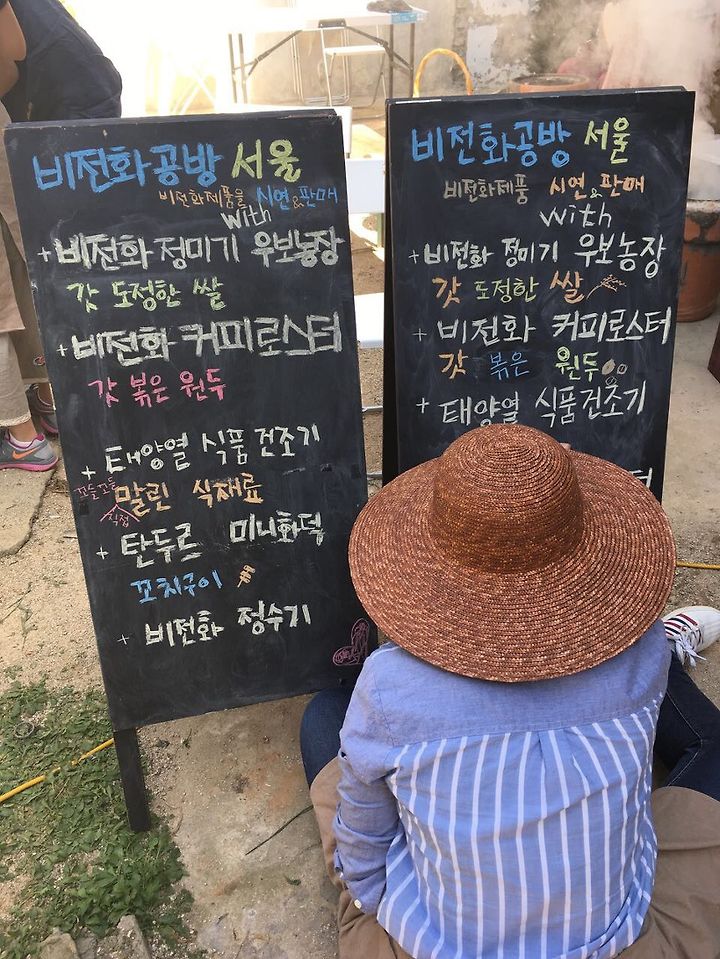 비전화공방 서울
비전화제품을 시연&판매
with
+ 비전화 정미기 우보농장
갓 도정한 쌀
+ 비전화 커피로스터
갓 볶은 원두
+ 태양열 식품건조기
꼬들꼬들 말린 식재료
직접
+ 탄두르 미니화덕
꼬치구이
+ 비전화 정수기
비전화공방 서울
비전화제품 시연&판매
with
+ 비전화 정미기 우보농장
갓 도정한 쌀
+ 비전화 커피로스터
갓 볶은 원두
+ 태양열 식품건조기